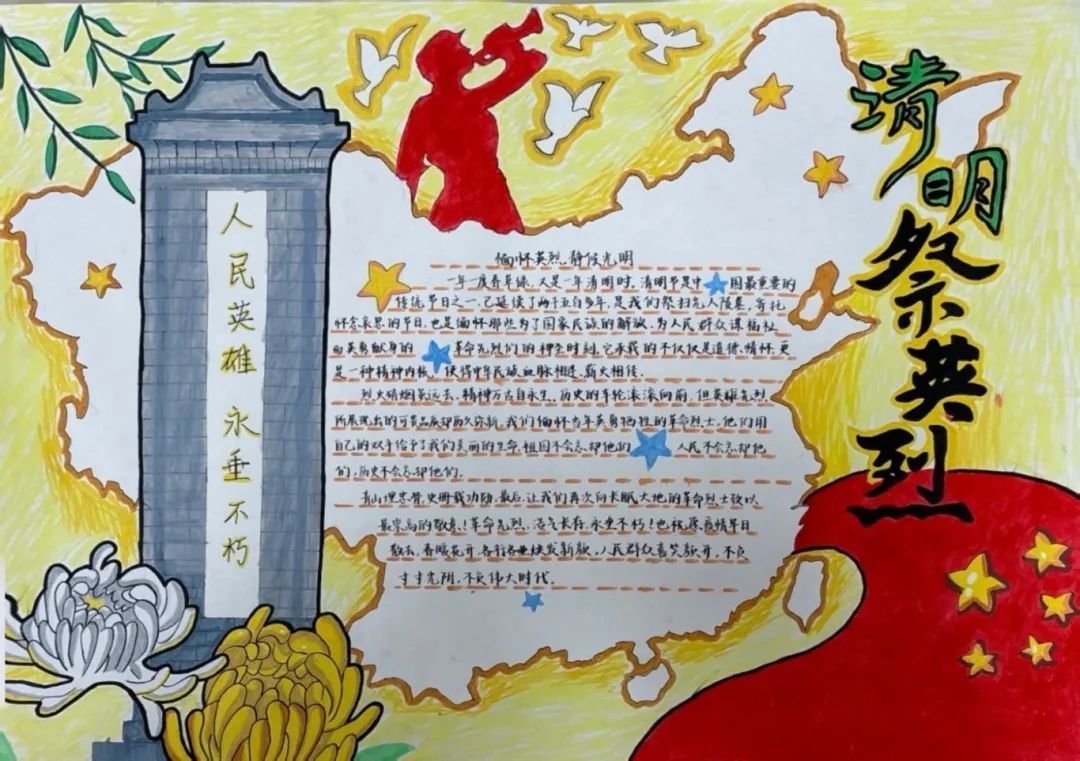 清明祭英烈
人民英雄永垂不朽
缅怀英烈,静候光明
一年一度春草绿,又是一年清明时,清明节是中国最重要的
传统节日之一,已延续了两千五百多年,是我们祭扫先人陵墓,寄托
怀念哀思的节日,也是缅怀那些为了国家民族的解放,为人民群众谋福祉
而英勇献身的革命先烈们的神圣时刻,它承载的不仅仅是道德、情怀,更
是一种精神内核,使得中华民族血脉相连,薪火相传。
烈火硝烟虽远去,精神万古自永生。历史的车轮滚滚向前,但英雄先烈
所展现出的可贵品质却历久弥新,我们缅怀当年英勇牺牲的革命烈士,他们用
自己的双手给予了我们美丽的生命,祖国不会忘却他们人民不会忘却他
们,历史不会忘却他们。
青山埋忠骨,史册载功勋,最后,让我们再次向长眠大地的革命烈士致以
最崇高的敬意!革命先烈,浩气长存,永垂不朽!也祝愿疫情早日
散去,春暖花开,各行各业焕发新颜,人民群众喜笑颜开,不负
寸寸光阴,不负伟大时代。